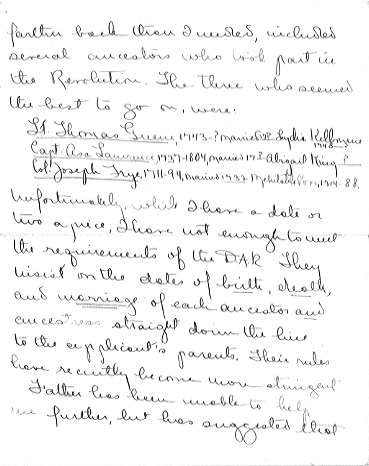 farther back than I needed, included
several ancestors who took part in
the Revolution. The three who seemed
the best to go on, were:
Lt. Thomas Green, 1743-? married 17 Lydia Kilborne
1748
Capt. Asa Lawrence, 1737-1804, married 17 Abigail King ?
Col. Joseph Frye, 1711-94, married 1732 Mehitable 1714-88.
Unfortunately, while I have a date or
two apiece, I have not enough to meet
the requirements of the DAR. They
insist on the dates of birth, death,
and marriage of each ancestor and
ancestress straight down the line
to the applicant's parents. Their rules
have recently become more stringent
Father has been unable to help
me further, but has suggested that